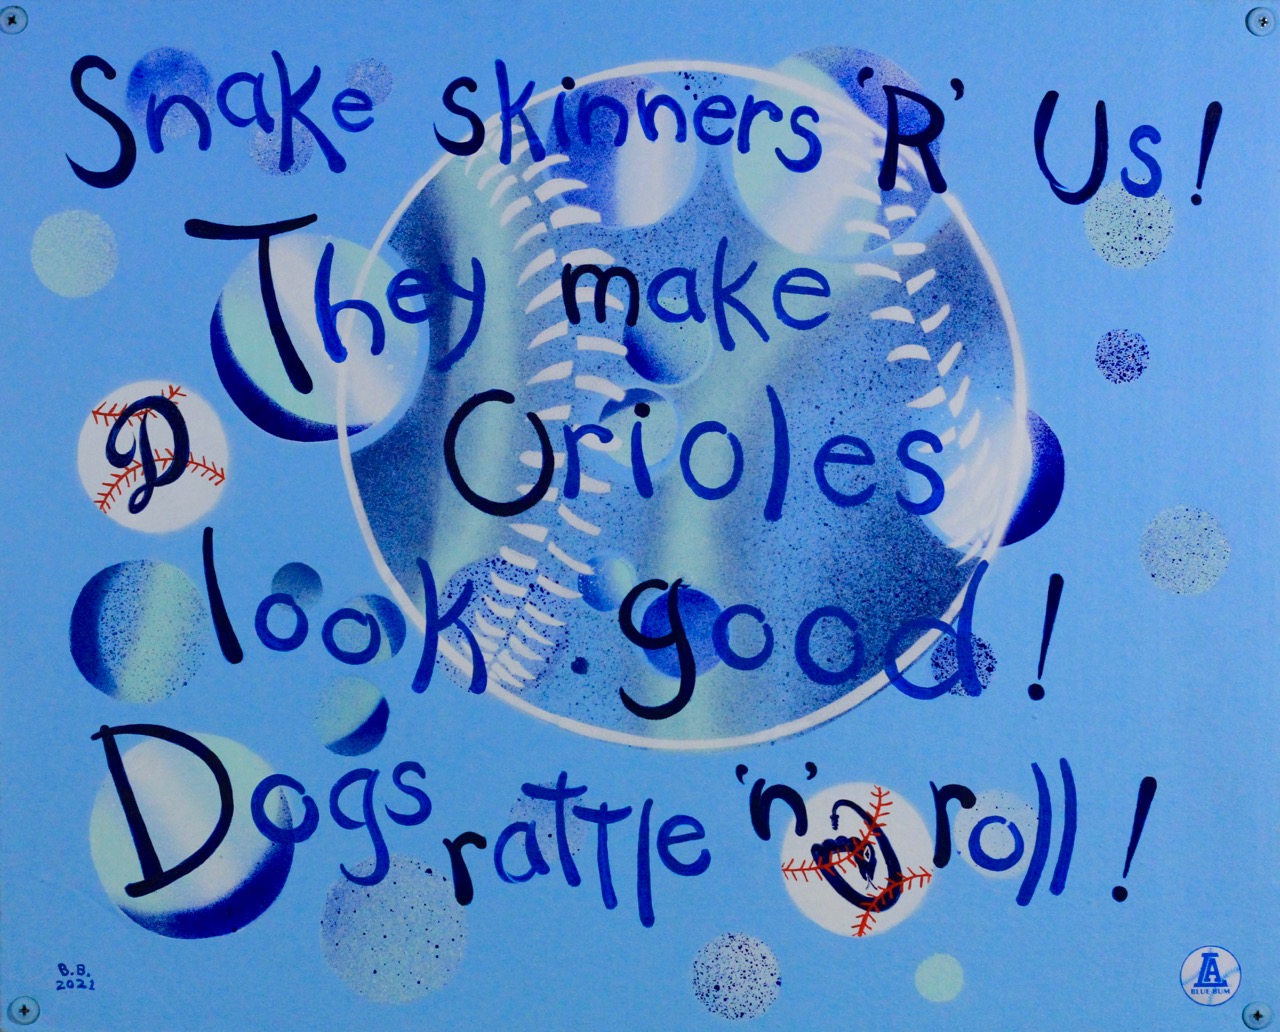 Snake skinners 'R' Us!
They make
Orioles
D
look good!
Dogs rattle 'n' roll!
B.B.
2021
LA
BLUE BUM